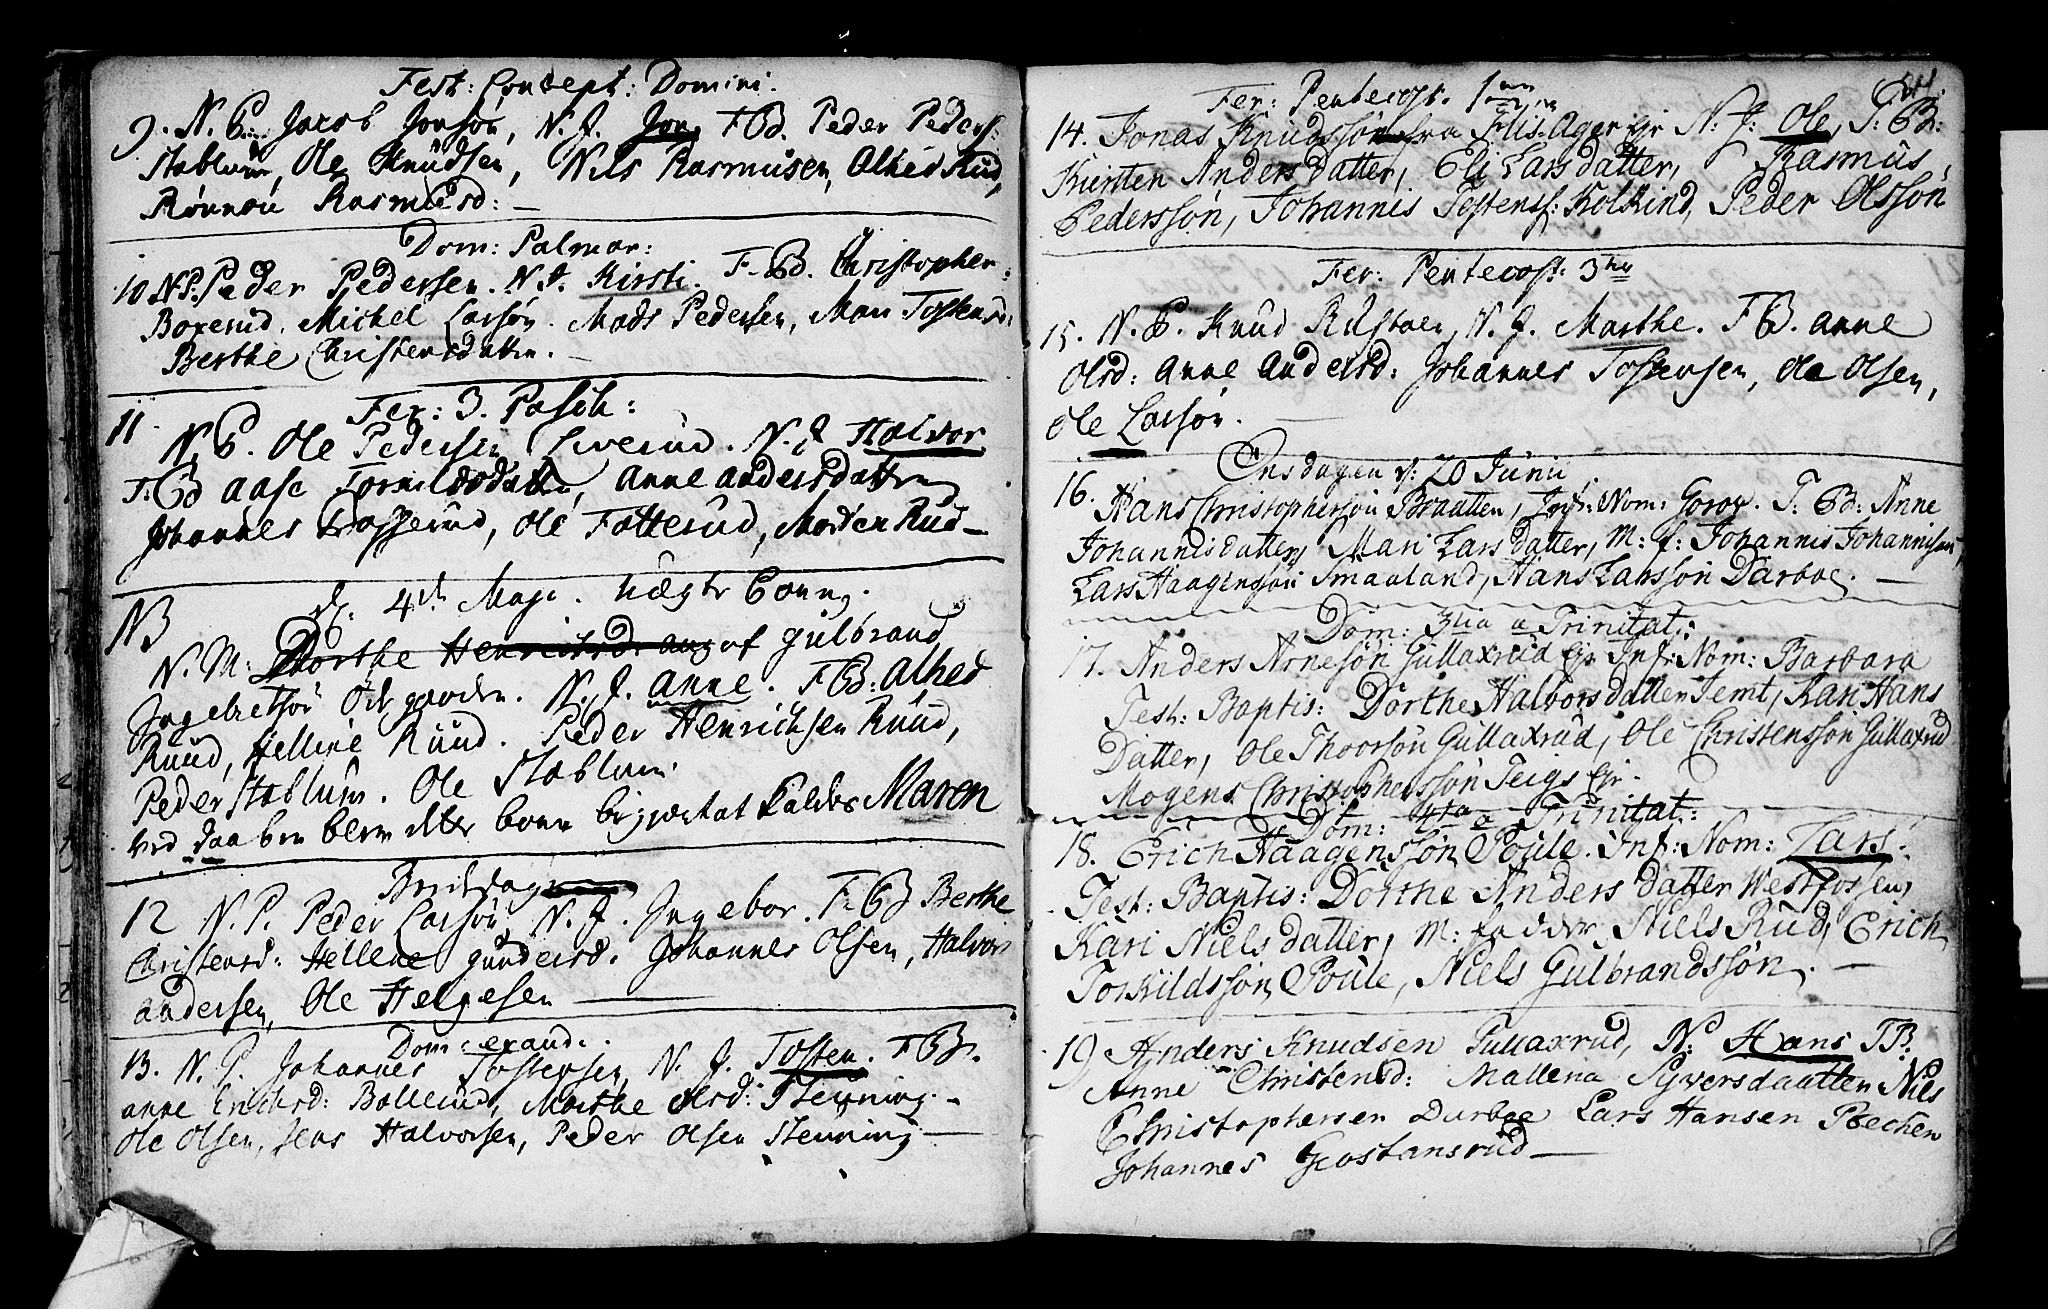 Fest: Concept: Domini.
9. N. P. Jacob Jonsøn, N. J. Jon, T B. Peder Peders:
Stablum, Ole Knudsen, Nils Rasmusen, Alhed Rud,
Rønnou Rasmusd: —
Dom: Palmar:
10 N P. Peder Pedersen. N. J. Kirsti. T. B. Christopher
Boxerud. Michel Larsøn. Mads Pedersen, Mari Tostensd:
Berthe Christensdatter. —
Fer: 3. Pasch:
11. N. P. Ole Pedersen Liverud. N. J Halvor
T: B Aase Torkildsdatter, Anne Andersdatter
Johannes Fosserud, Ole Fotterud, Morten Rud —
d. 4de Maji. uægte Barn.
NB
N. M: Dorthe Henrichsd: af Gulbrand
Ingebretsøn N. J. Anne. T B: Alhed
Ruud, Helline Ruud. Peder Henrichsen Ruud,
Peder Stablum. Ole Stablum.
ved daaben blev dette barn kaldet Maren
Bededag
12 N. P. Peder Larsøn, N. J. Ingebor. T. B Berthe
Christensd: Hellene Gundersd. Johannes Olsen, Halvor
Andersen, Ole Helgesen —
Dom: exaud:
13. N. P. Johannes Tostensen, N. J. Tosten. T B.
Anne Erichsd: Bollerud, Marthe Olsd: Stenning. —
Ole Olsen, Jens Halvorsen, Peder Olsen Stenning —
Fer: Pentecost. 1ma
14. Jonas Knudssøn fra Flis-Ager Ejr N: J: Ole, T: B:
Kirsten Anders datter, Eli Lars datter, Rasmus
Pederssøn, Johannis Tostenss: Kolkind, Peder Olssøn
Fer: Pentecost: 3tia
15. N. P. Knud Rustoen, N. J. Marthe. T B. Anne
Olsd: Anne Andersd: Johannes Tostensen, Ole Olsen,
Ole Larsøn. —
Onsdagen d: 20 Junii
16. Hans Christophersøn Braatten, Inf: Nom: Goroy. T: B: Anne
Johannis datter, Mari Lars datter, M: f: Johannis Johannisøn,
Lars Haagensøn Smaaland, Hans Larssøn Darboe. —
Dom: 3tia a Trinitat:
17. Anders Arnesøn Gullaxrud Ejr Inf: Nom: Barbara
Test: Baptis: Dorthe Halvors datter Jemt, Kari Hans
Datter, Ole Thoorsøn Gullaxrud, Ole Christenssøn Gullaxrud
Mogens Christopherssøn Teigs Ejr.
Dom: 4ta a Trinitat:
18. Erich Haagenssøn Poule. Inf: Nom: Lars.
Test: Baptis: Dorthe Anders datter Westfossen,
Kari Niels datter, M: fadder, Niels Rud, Erich
Torkildssøn Poule, Niels Gulbrandssøn. —
19) Anders Knudsen Gullaxrud, N: Hans TB.
Anne Christensd: Mallena Syversdaatter Nils
Christophersen Darboe Lars Hansen Bechen
Johannes Gostansrud —